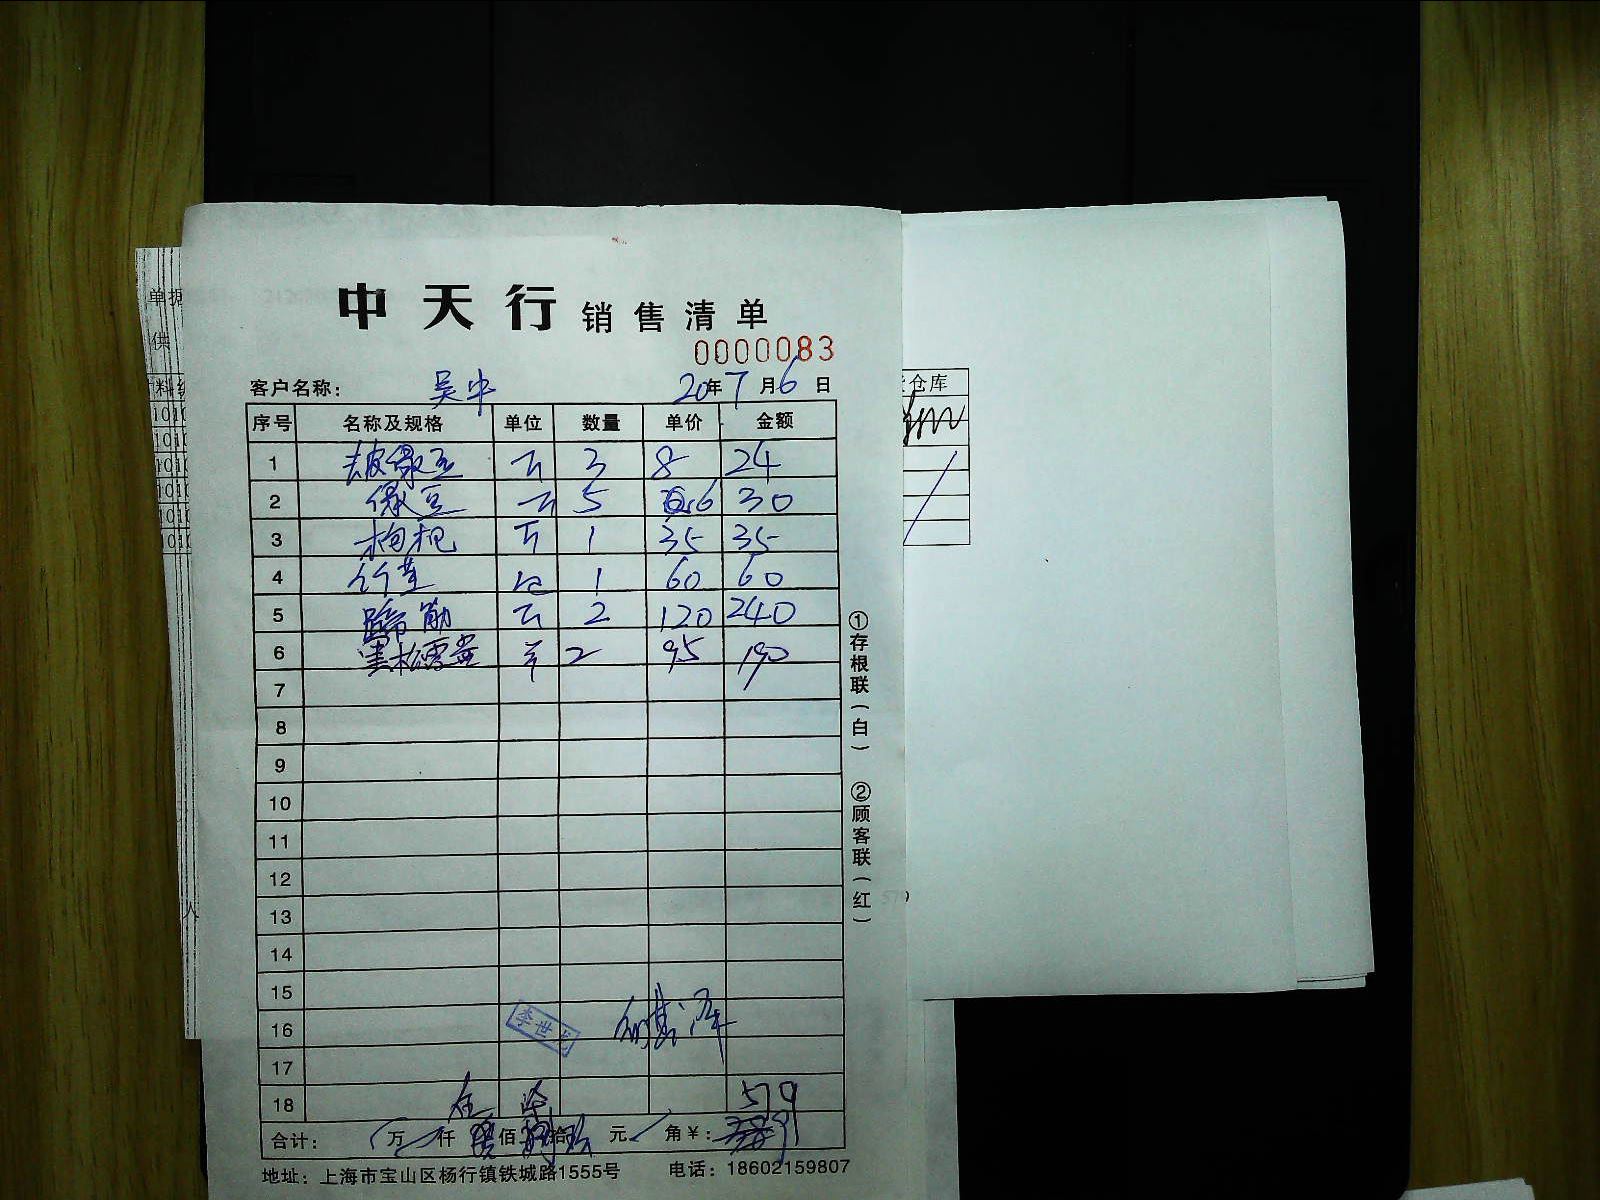 中天行 销售清单
0000083
客户名称： 吴中 20年7月6日
序号 名称及规格 单位 数量 单价 金额
1 去皮绿豆 斤 3 8 24
2 绿豆 斤 5 6 30
3 枸杞 斤 1 35 35
4 竹笙 包 1 60 60
5 蹄筋 斤 2 120 240
6 黑松露 2 95 190
7
8
9
10
11
12
13
14
15
16 李世龙
17
18 伍 柒 579
合计： 万 仟 佰 拾 元 角￥：
地址：上海市宝山区杨行镇铁城路1555号 电话：18602159807
①存根联（白） ②顾客联（红）
单据
供
料
仓库